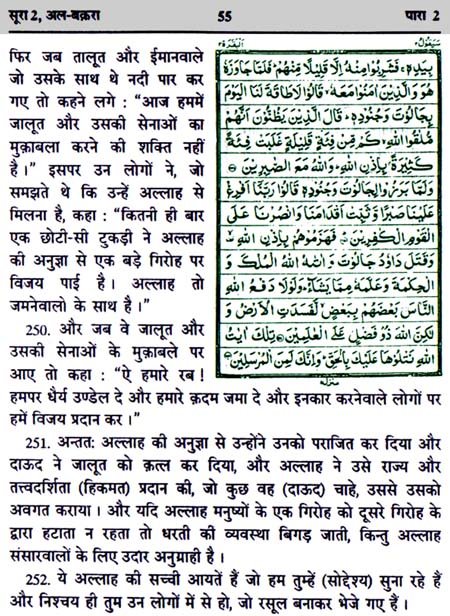 सूरा 2, अल-बक़रा 55 पारा 2
फिर जब तालूत और ईमानवाले
जो उसके साथ थे नदी पार कर
गए तो कहने लगे : “आज हममें
जालूत और उसकी सेनाओं का
मुक़ाबला करने की शक्ति नहीं
है।” इसपर उन लोगों ने, जो
समझते थे कि उन्हें अल्लाह से
मिलना है, कहा : “कितनी ही बार
एक छोटी-सी टुकड़ी ने अल्लाह
की अनुज्ञा से एक बड़े गिरोह पर
विजय पाई है। अल्लाह तो
जमनेवालो के साथ है।”
250. और जब वे जालूत और
उसकी सेनाओं के मुक़ाबले पर
आए तो कहा : “ऐ हमारे रब!
हमपर धैर्य उण्डेल दे और हमारे क़दम जमा दे और इनकार करनेवाले लोगों पर
हमें विजय प्रदान कर।”
251. अन्तत: अल्लाह की अनुज्ञा से उन्होंने उनको पराजित कर दिया और
दाऊद ने जालूत को क़त्ल कर दिया, और अल्लाह ने उसे राज्य और
तत्त्वदर्शिता (हिकमत) प्रदान की, जो कुछ वह (दाऊद) चाहे, उससे उसको
अवगत कराया। और यदि अल्लाह मनुष्यों के एक गिरोह को दूसरे गिरोह के
द्वारा हटाता न रहता तो धरती की व्यवस्था बिगड़ जाती, किन्तु अल्लाह
संसारवालों के लिए उदार अनुग्राही है।
252. ये अल्लाह की सच्ची आयतें हैं जो हम तुम्हें (सोद्देश्य) सुना रहे हैं
और निश्चय ही तुम उन लोगों में से हो, जो रसूल बनाकर भेजे गए हैं।
سيقول٢ البقرة٢
بِيَدِهٖ فَشَرِبُوْا مِنْهُ اِلَّا قَلِيْلًا مِّنْهُمْ فَلَمَّا جَاوَزَهٗ
هُوَ وَالَّذِيْنَ اٰمَنُوْا مَعَهٗ قَالُوْا لَا طَاقَةَ لَنَا الْيَوْمَ
بِجَالُوْتَ وَجُنُوْدِهٖ قَالَ الَّذِيْنَ يَظُنُّوْنَ اَنَّهُمْ
مُّلٰقُوا اللّٰهِ كَمْ مِّنْ فِئَةٍ قَلِيْلَةٍ غَلَبَتْ فِئَةً
كَثِيْرَةً بِاِذْنِ اللّٰهِ وَاللّٰهُ مَعَ الصّٰبِرِيْنَ
وَلَمَّا بَرَزُوْا لِجَالُوْتَ وَجُنُوْدِهٖ قَالُوْا رَبَّنَا اَفْرِغْ
عَلَيْنَا صَبْرًا وَّثَبِّتْ اَقْدَامَنَا وَانْصُرْنَا عَلَى
الْقَوْمِ الْكٰفِرِيْنَ فَهَزَمُوْهُمْ بِاِذْنِ اللّٰهِ
وَقَتَلَ دَاوٗدُ جَالُوْتَ وَاٰتٰىهُ اللّٰهُ الْمُلْكَ وَ
الْحِكْمَةَ وَعَلَّمَهٗ مِمَّا يَشَآءُ وَلَوْلَا دَفْعُ اللّٰهِ
النَّاسَ بَعْضَهُمْ بِبَعْضٍ لَّفَسَدَتِ الْاَرْضُ وَ
لٰكِنَّ اللّٰهَ ذُوْ فَضْلٍ عَلَى الْعٰلَمِيْنَ تِلْكَ اٰيٰتُ
اللّٰهِ نَتْلُوْهَا عَلَيْكَ بِالْحَقِّ وَاِنَّكَ لَمِنَ الْمُرْسَلِيْنَ
منزل